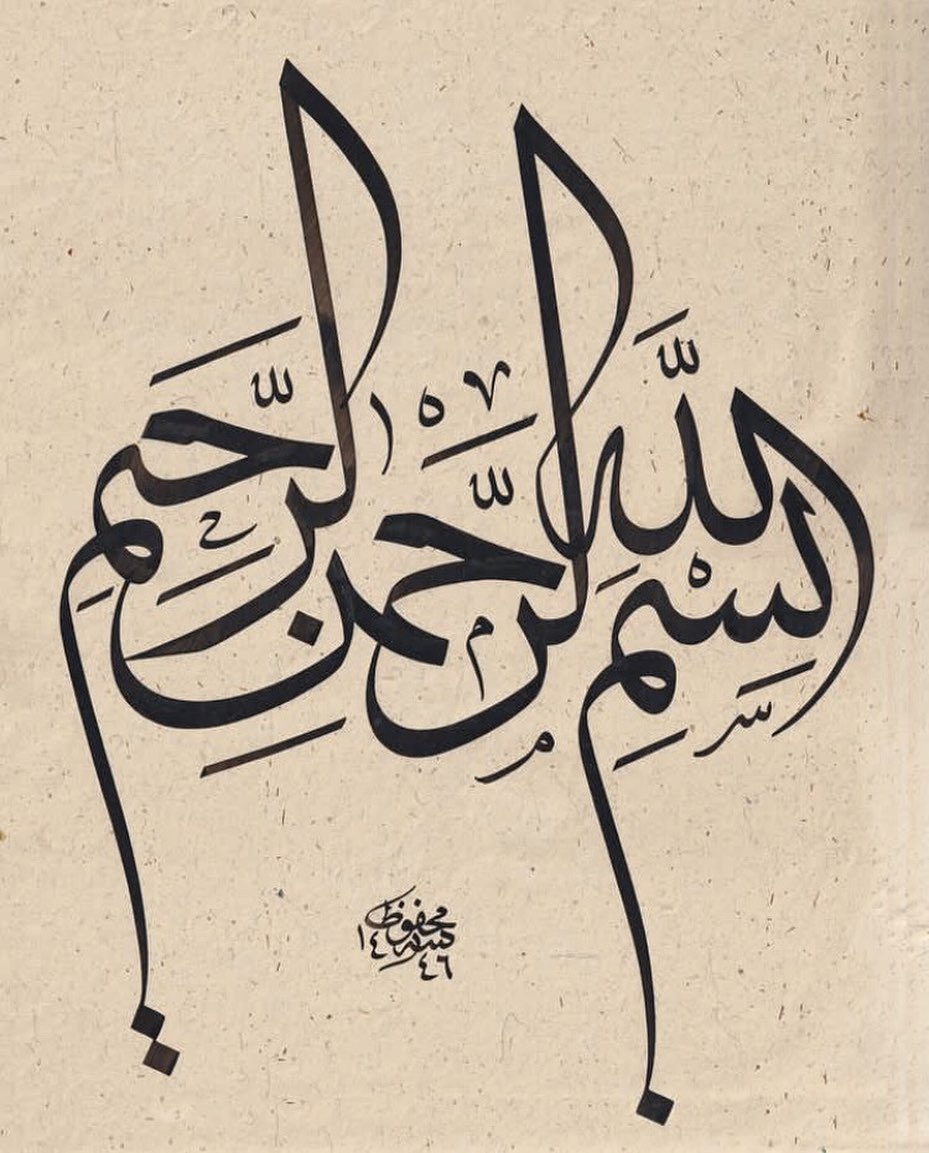 بسم الله الرحمن الرحيم
محفوظ
١٤٤٦